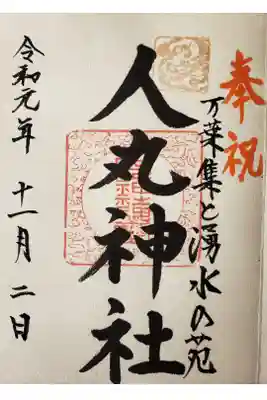 奉祝
万葉集と湧水の苑
人丸神社
令和元年 十一月 二日